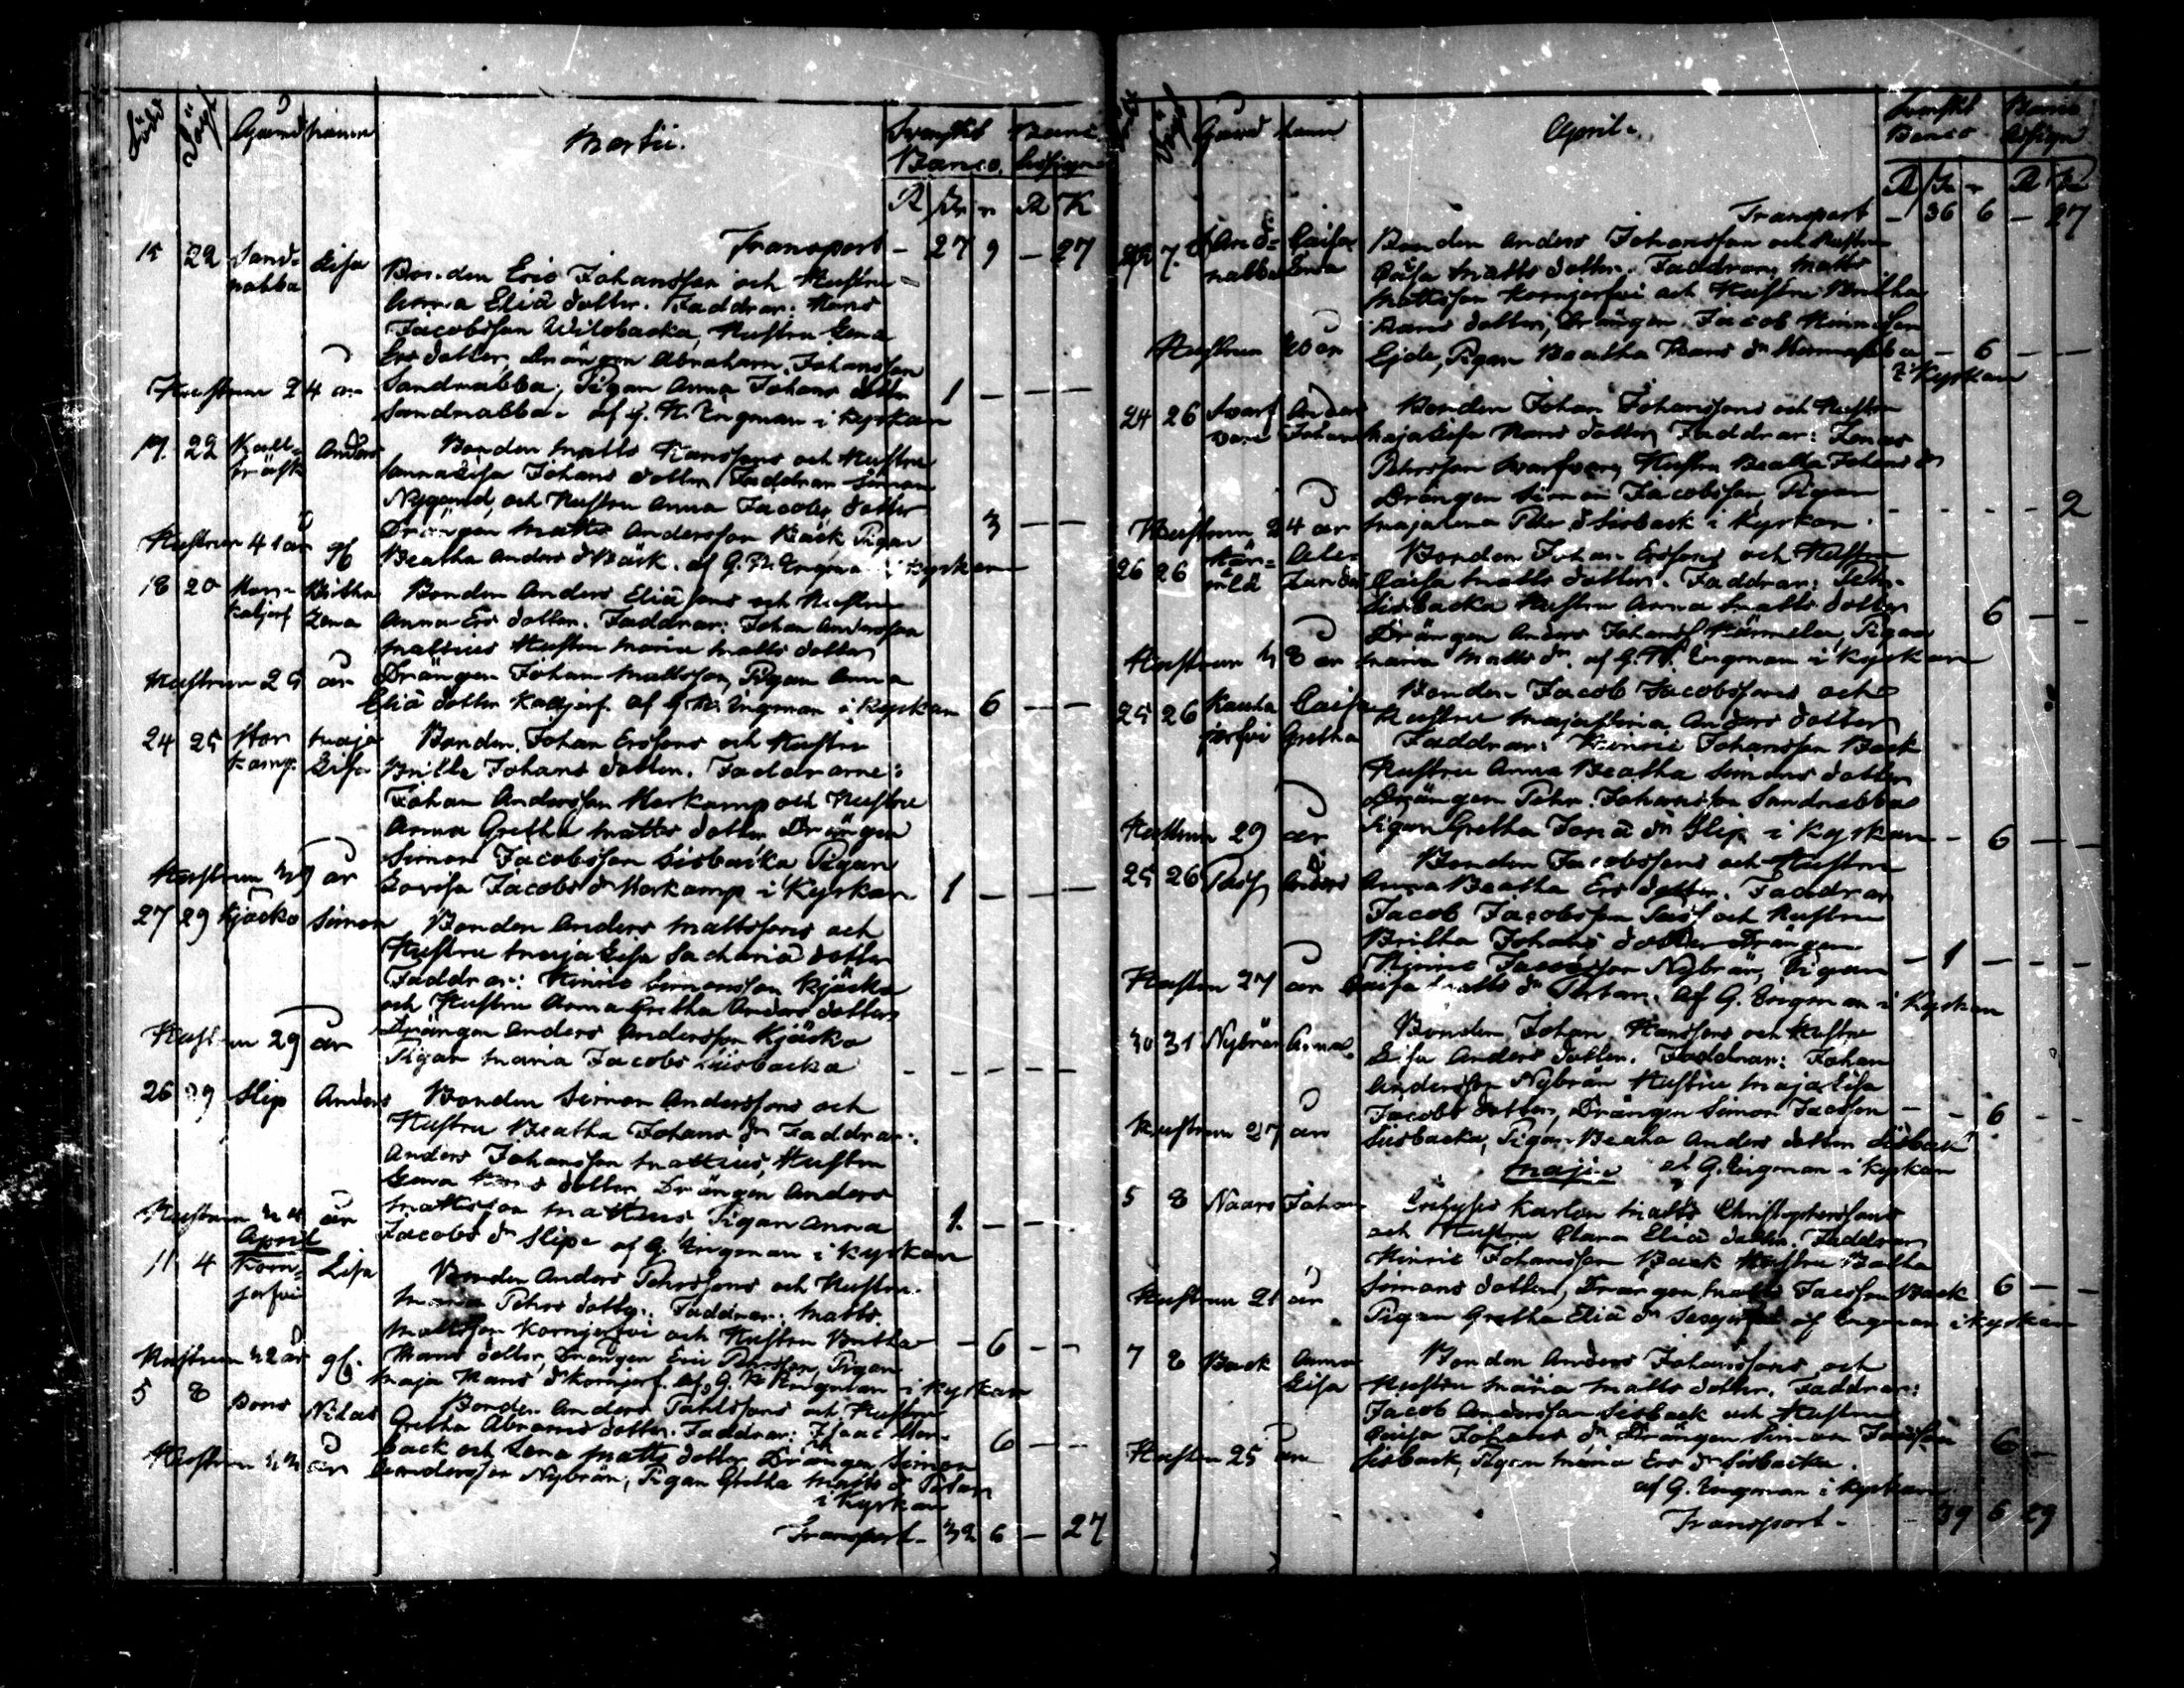 Född Döpt Gård namn Martii. Svenskt Banco. Banc. Assign
R Sk r R K
Transport - 27 9 - 27
15 22 Sand= Lisa Bonden Eric Johansson och Hustru
nabba Anna Eliä dotter. Faddrar: Hans
Jacobsson Wilobacka, Hustru Lena
Ers dotter, Drängen Abraham Johansson
Hustrun 24 år Sandnabba, Pigan Anna Johans dotter 1 - - -
Sandnabba. af G. N. Engman i kyrkan
17. 22 Kall= Anders Bonden Matts Hanssons och Hustru
träsk Annalisa Johans dotter Faddrar Simon
Nygård, och Hustru Anna Jacobs dotter
Drängen Matts Andersson Bäck Pigan 3 - -
Hustrun 41 år Beatha Anders d Bäck. af G. N. Engman i kyrkan
18 20 Britha Bonden Anders Eliä sons och Hustru
Lena Anna Ers dotter. Faddrar: Johan Andersson
Mattius Hustru Maria Matts dotter
Hustrun 29 år Drängen Johan Mattsson, Pigan Anna
Eliä dotter Kalljerf. af G. N. Engman i kyrkan 6 - -
24 25 Hor Maja Bonden Johan Erssons och Hustru
kamp. Lisa Britta Johans dotter. Faddrarne:
Johan Andersson Horkamp och Hustru
Anna Gretha Matts dotter Drängen
Simon Jacobsson Sisbacka Pigan
Hustrun år Lovisa Jacobs dr Horkamp i Kyrkan 1 - - -
27 29 Kjäcko Simon Bonden Anders Mattssons och
Hustru Maja Lisa Sacharia dotter
Faddrar: Hinric Simonsson Kjäcko
och Hustru Anna Gretha Anders dotter
Hustrun 29 år Drängen Anders Andersson Kjäcko
Pigan Maria Jacobs Siisbacka - - - - -
26 29 Slip Anders Bonden Simon Anderssons och
Hustru Beatha Johans dr Faddrar:
Anders Johansson Mattius, Hustru
Lena Hans dotter, Drängen Anders
Hustrun år Mattsson Mattius Pigan Anna 1. - - -
Jacobs dr Slip. af G. Engman i kyrkan
April
11 4 Korn= Lisa Bonden Anders Pehrssons och Hustru
jerfvi Maria Pehrs dotter: Faddrar: Matts
Mattsson Kornjerfvi och Hustru Britha
Hustrun år Hans dotter, Drängen Eric Pehrsson, Pigan - 6 - -
Maja Hans d Kornjerf. af G. N. Engman i kyrkan
5 8 Niclas Bonden Anders Pahlssons och Hustru
Gretha Abrams dotter. Faddrar: Isaac Mar-
back och Lena Matts dotter Drängen Simon 6 - -
Hustrun år Andersson Nybrän, Pigan Gretha Matts d
i kyrkan
Transport - 32 6 - 27
Gård namn April. Svenskt Banco Banco Assign
R Sk r R K
Transport - 36 6 - 27
7. Sand= Caisa Bonden Anders Johansson och Hustru
nabba Lena Caisa Matts dotter. Faddrar, Matts
Mattsson Kornjerfvi och Hustru Britha
Hans dotter, Drängen Jacob Hinnsson
Hustrun år Ejde, Pigan Beatha Hans dr - 6 - -
i Kyrkan
24 26 Svarf Anders Bonden Johan Johanssons och Hustru
vare Johan Majalisa Hans dotter Faddrar: Jonas
Pehrsson Svarfvar, Hustru Beatta Johans d
Drängen Simon Jacobsson, Pigan
Hustrun 24 år Majalena Pehr d Sisback i Kyrkan. - - - - 2
26 26 Kär= Ale= Bonden Johan Erssons och Hustru
mlä xander Caisa Matts dotter. Faddrar: Pehr
Sisbacka Hustru Anna Matts dotter
Drängen Anders Johanss Kärmelä, Pigan 6 - -
Hustrun år Maria Matts dr. af G. N. Engman i kyrkan
25 26 Kauha Caisa Bonden Jacob Jacobssons och
jerfvi Gretha Hustru Majastina Anders dotter
Faddrar: Hinric Johansson Back
Hustru Anna Beatha Simons dotter
Drängen Pehr Johansson Sandnabba
Hustrun 29 år Pigan Gretha Jonä dr Slip i kyrkan - 6 - -
25 26 Pass Anders Bonden Jacobssons och Hustru
Anna Beatha Ers dotter. Faddrar
Jacob Jacobsson Pass och Hustru
Britha Johans dotter Drängen
Hinric Jacobsson Nybrän, Pigan - 1 - - -
Hustrun 27 år Caisa Matts dr af G. Engman i Kyrkan
30 31 Nybrän Anna Bonden Johan Hanssons och Hustru
Lisa Anders dotter. Faddrar: Johan
Andersson Nybrän Hustru Majalisa
Jacobs dotter, Drängen Simon Jacsson - - 6 - -
Hustrun 27 år Siisbacka, Pigan Beata Anders dotter Sisback
Maji. af G. Engman i kyrkan
5 8 Naars Johan Karlen Matts Christophersons
och Hustru Clara Eliä dotter. Faddrar
Hinric Johansson Back Hustru Beatha
Simons dotter, Drängen Matts Jacsson Back 6 - -
Hustrun 21 år Pigan Gretha Eliä dr af Engman i kyrkan
7 8 Back Anna Bonden Anders Johanssons och
Lisa Hustru Maria Matts dotter. Faddrar:
Jacob Andersson Sisback och Hustru
Caisa Johans dr Drängen Simon Jacsson 6 -
Hustrun 25 år Sisback, Pigan Maria Ers dr Sisbacka.
af G. Engman i kyrkan
Transport - 39 6 29